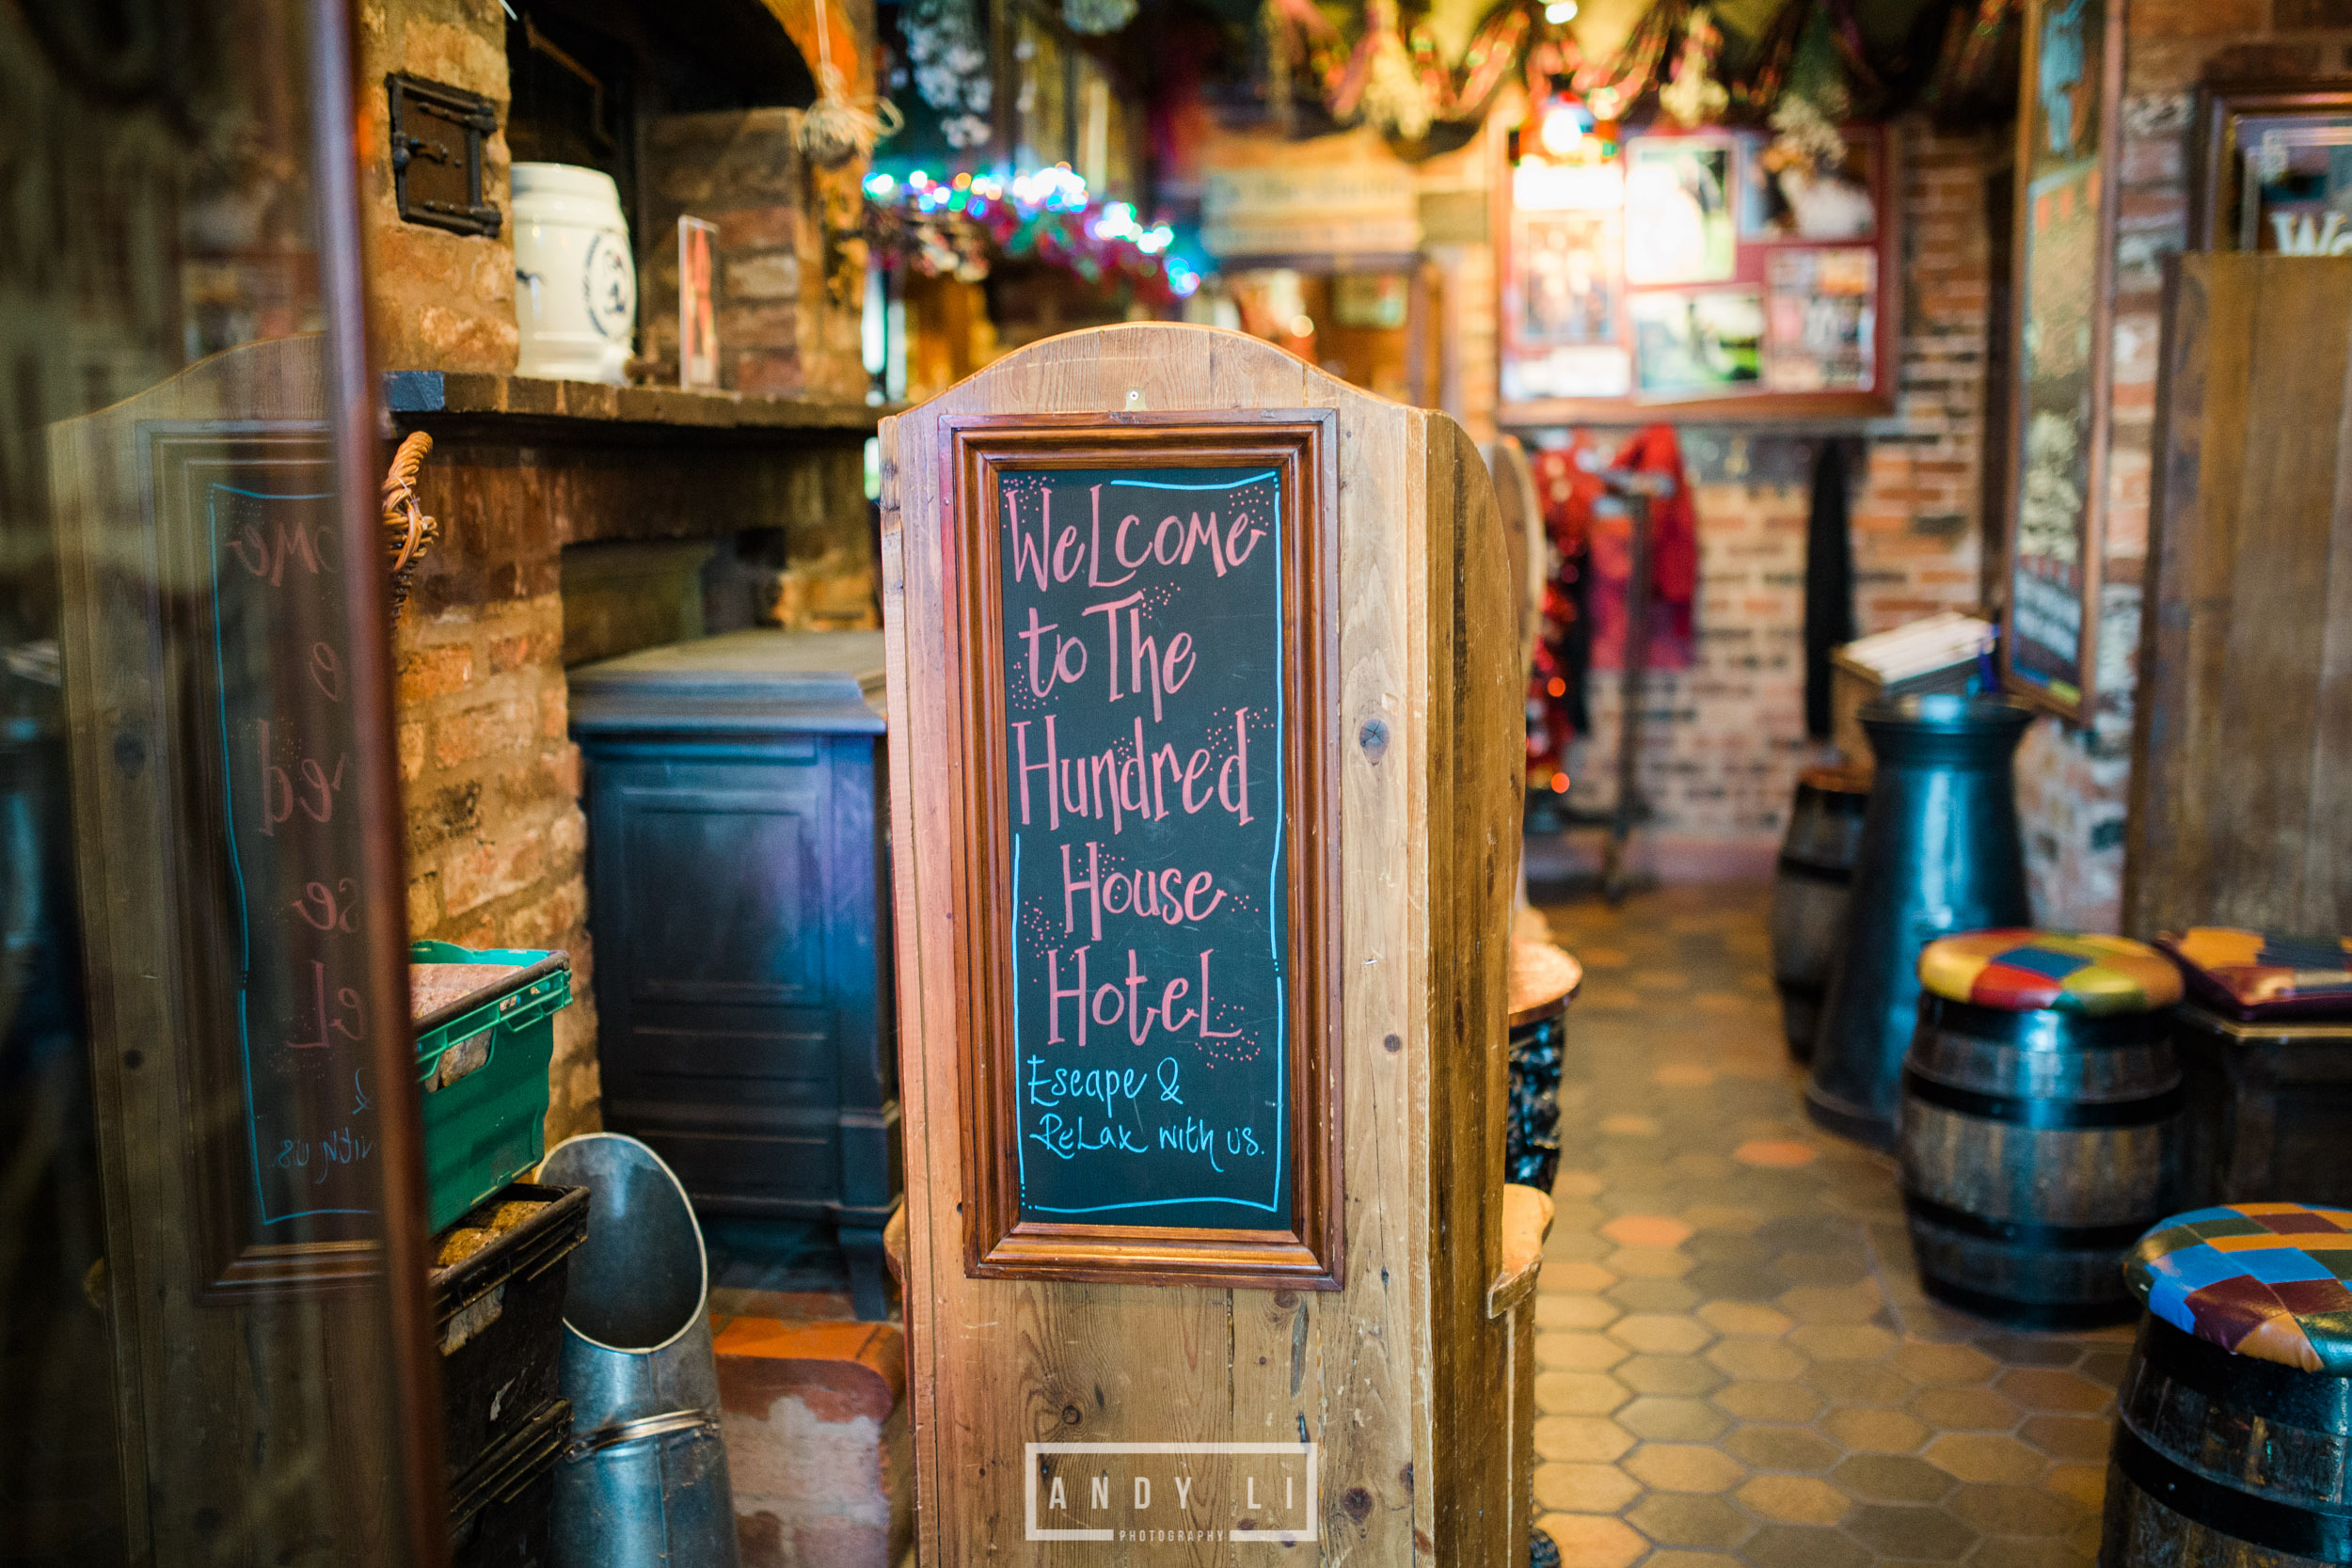 WeLcome
to The
Hundred
House
HoteL
Escape &
ReLax with us.
ANDY LI
PHOTOGRAPHY